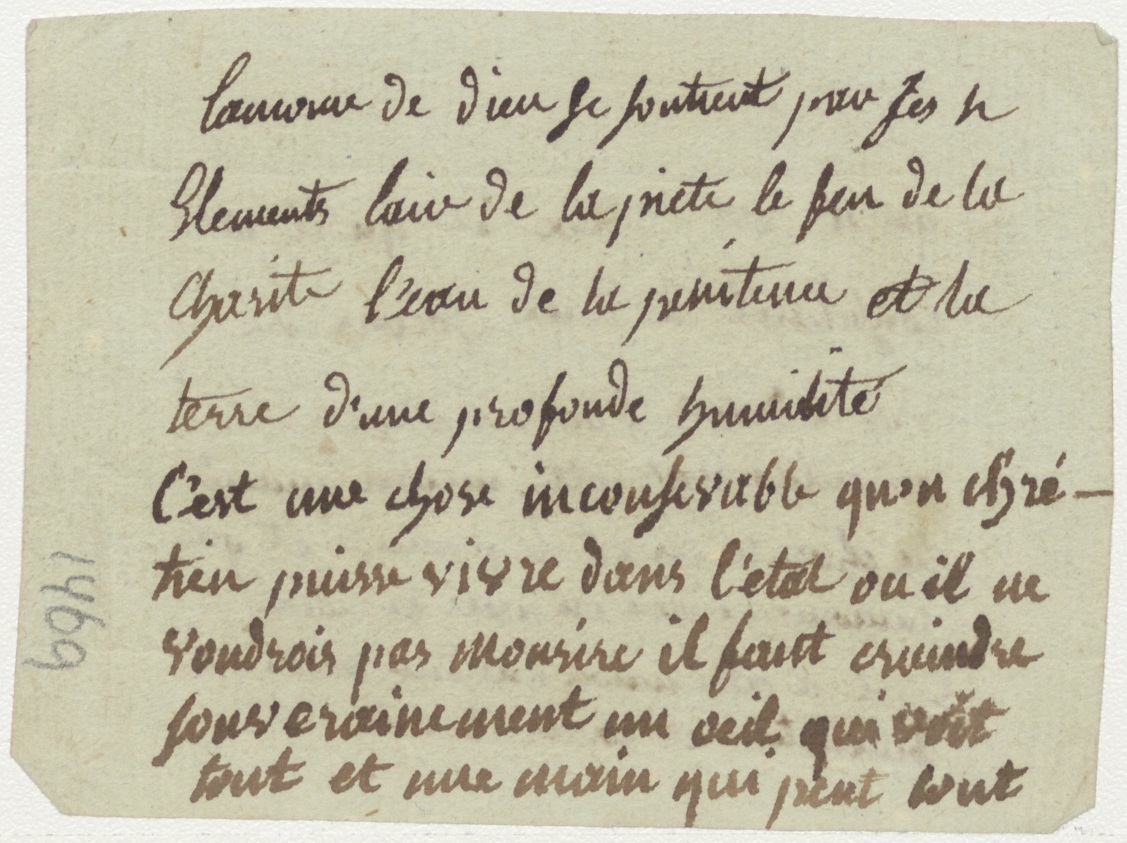 lamour de dieu se soutient par les 4
Elements lair de la piete le feu de la
Charite l'eau de la penitence et la
terre d'une profonde humilité
C'est une chose inconservable qu'un chré-
tien puisse vivre dans l'etat ou il ne
voudrois pas mourire il faut craindre
souverainement un oeil qui voit
tout et une main qui peut tout
1469